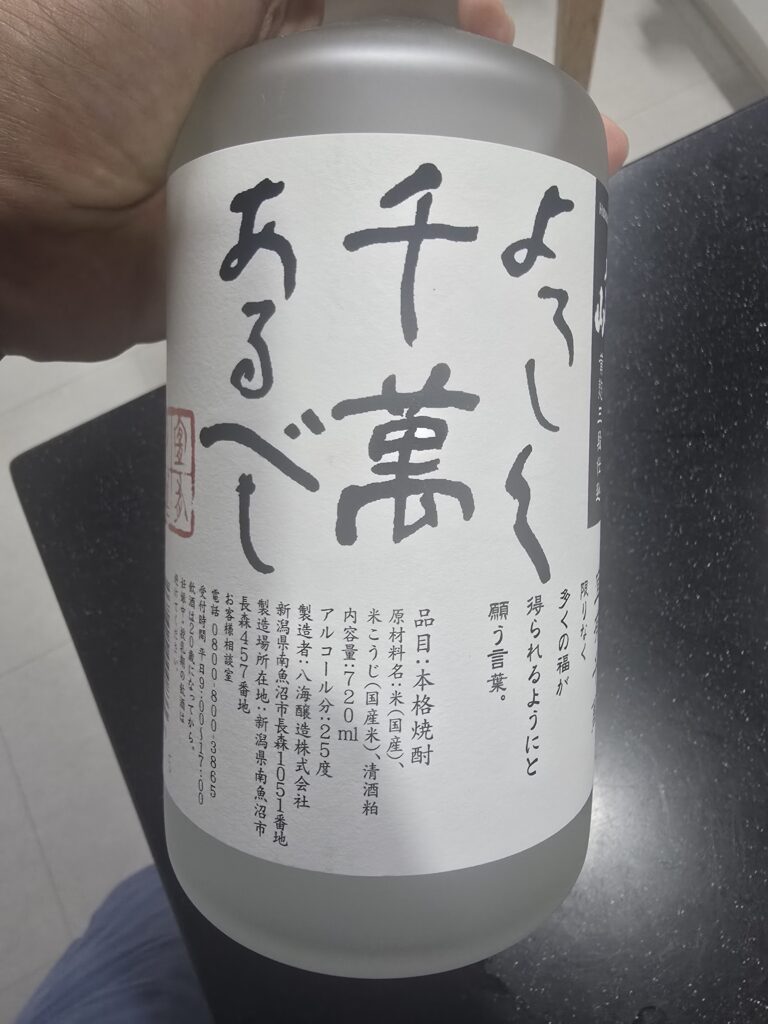 よろしく
千萬
あるべし
限りなく
多くの福が
得られるようにと
願う言葉。
品目:本格焼酎
原材料名:米(国産)、
米こうじ(国産米)、清酒粕
内容量:720ml
アルコール分:25度
製造者:八海醸造株式会社
新潟県南魚沼市長森1051番地
製造場所在地:新潟県南魚沼市
長森457番地
お客様相談室
電話 0800-800-3865
受付時間 平日9:00〜17:00
飲酒は20歳になってから。
妊娠中・授乳期の飲酒は